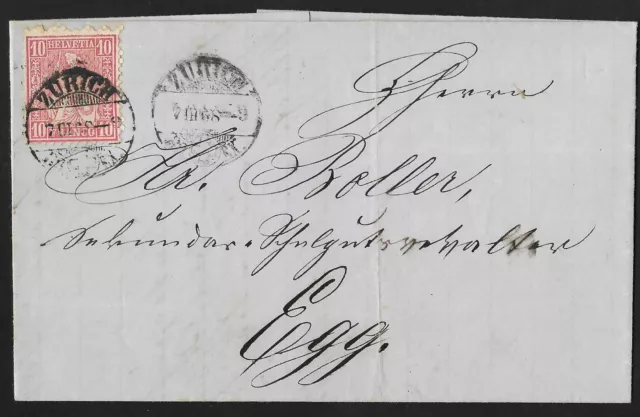 10 HELVETIA 10
ZÜRICH
7 III 68 – 9
10 10
ZÜRICH
7 III 68 – 9
Herrn
Jb. Boller,
Sekundar-Schulgutsverwalter
Egg.